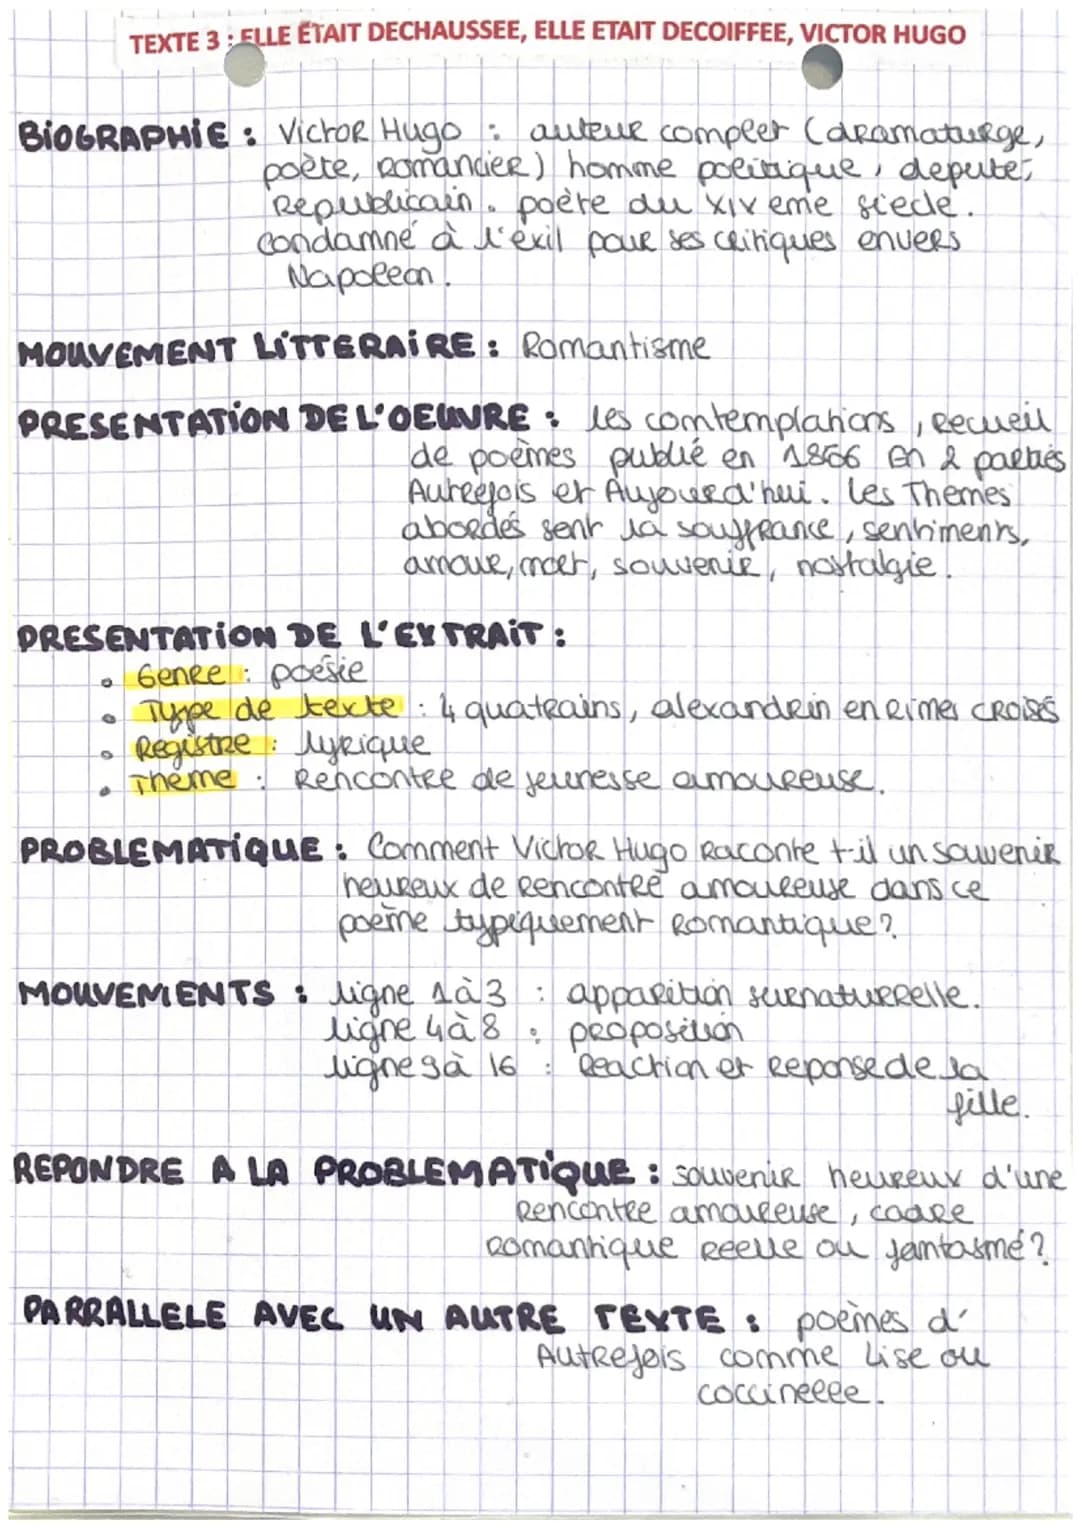 TEXTE 3 : ELLE ÉTAIT DECHAUSSEE, ELLE ETAIT DECOIFFEE, VICTOR HUGO
BIOGRAPHIE : Victor Hugo : auteur complet (dramaturge,
poète, romancier) homme politique, depute,
Republicain. poète du XIX eme siecle.
condamné à l'exil pour ses critiques envers
Napoleon.
MOUVEMENT LITTERAIRE : Romantisme
PRESENTATION DE L'OEUVRE : les comtemplations, recueil
de poèmes publié en 1856 en 2 parties
Autrefois et Aujourd'hui. les Themes
abordés sent la souffrance, sentiments,
amour, mort, souvenir, nostalgie.
PRESENTATION DE L'EXTRAIT :
• Genre : poésie
• Type de texte : 4 quatrains, alexandrin en rimes croisés
• Registre : lyrique
• Theme : Rencontre de jeunesse amoureuse.
PROBLEMATIQUE : Comment Victor Hugo Raconte t-il un souvenir
heureux de rencontre amoureuse dans ce
poème typiquement Romantique ?
MOUVEMENTS : ligne 1 à 3 : apparition surnaturrelle.
ligne 4 à 8 : proposition
ligne 9 à 16 : Reaction et Reponse de la
fille.
REPONDRE A LA PROBLEMATIQUE : souvenir heureux d'une
Rencontre amoureuse, cadre
romantique reelle ou fantasmé ?
PARRALLELE AVEC UN AUTRE TEXTE : poèmes d'
Autrefois comme Lise ou
coccinelle.